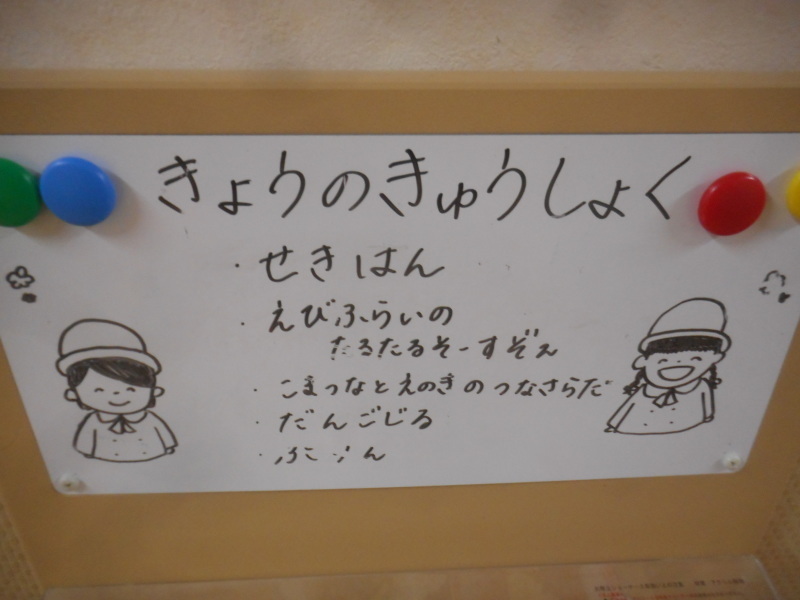 きょうのきゅうしょく
・せきはん
・えびふらいの
たるたるそーすぞえ
・こまつなとえのきのつなさらだ
・だんごじる